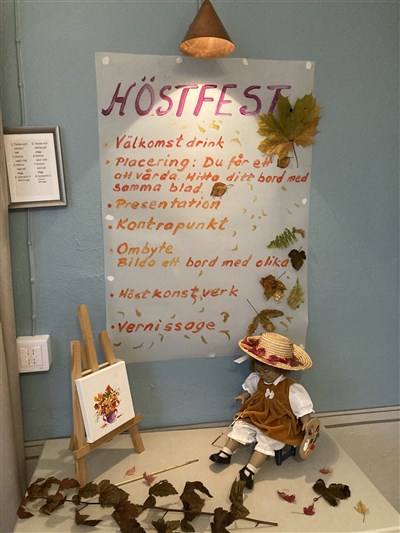 HÖSTFEST
• Välkomstdrink
• Placering: Du får ett
att vårda. Hitta ditt bord med
samma blad.
• Presentation
• Kontrapunkt
• Ombyte
Bilda ett bord med olika
• Höstkonstverk
• Vernissage